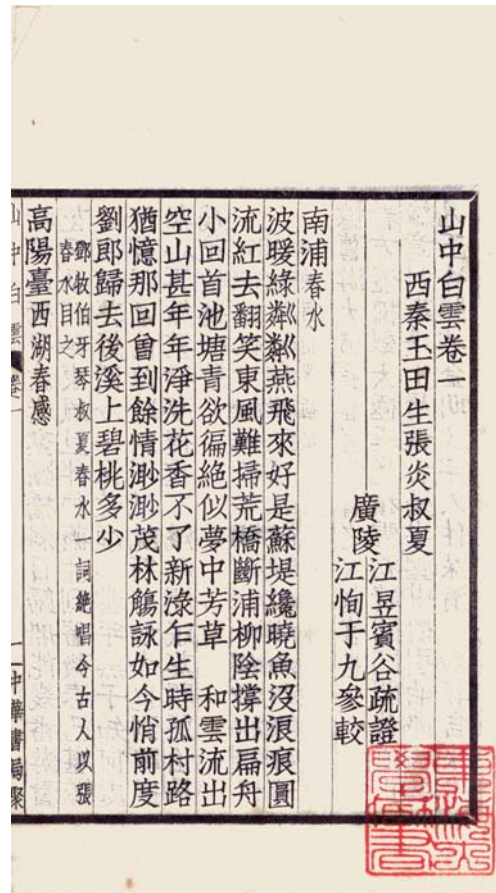 山中白雲卷一
西秦玉田生張炎叔夏
廣陵
江昱賓谷疏證
江恂于九參較
南浦春水
波暖綠粼粼燕飛來好是蘇堤纔曉魚沒浪痕圓
流紅去翻笑東風難掃荒橋斷浦柳陰撐出扁舟
小回首池塘青欲徧絕似夢中芳草 和雲流出
空山甚年年淨洗花香不了新淥乍生時孤村路
猶憶那回曾到餘情渺渺茂林觴詠如今悄前度
劉郎歸去後溪上碧桃多少
鄧牧伯牙琴叔夏春水一詞絕唱今古人以張
春水目之
高陽臺西湖春感
山中白雲 卷一
一中華書局聚